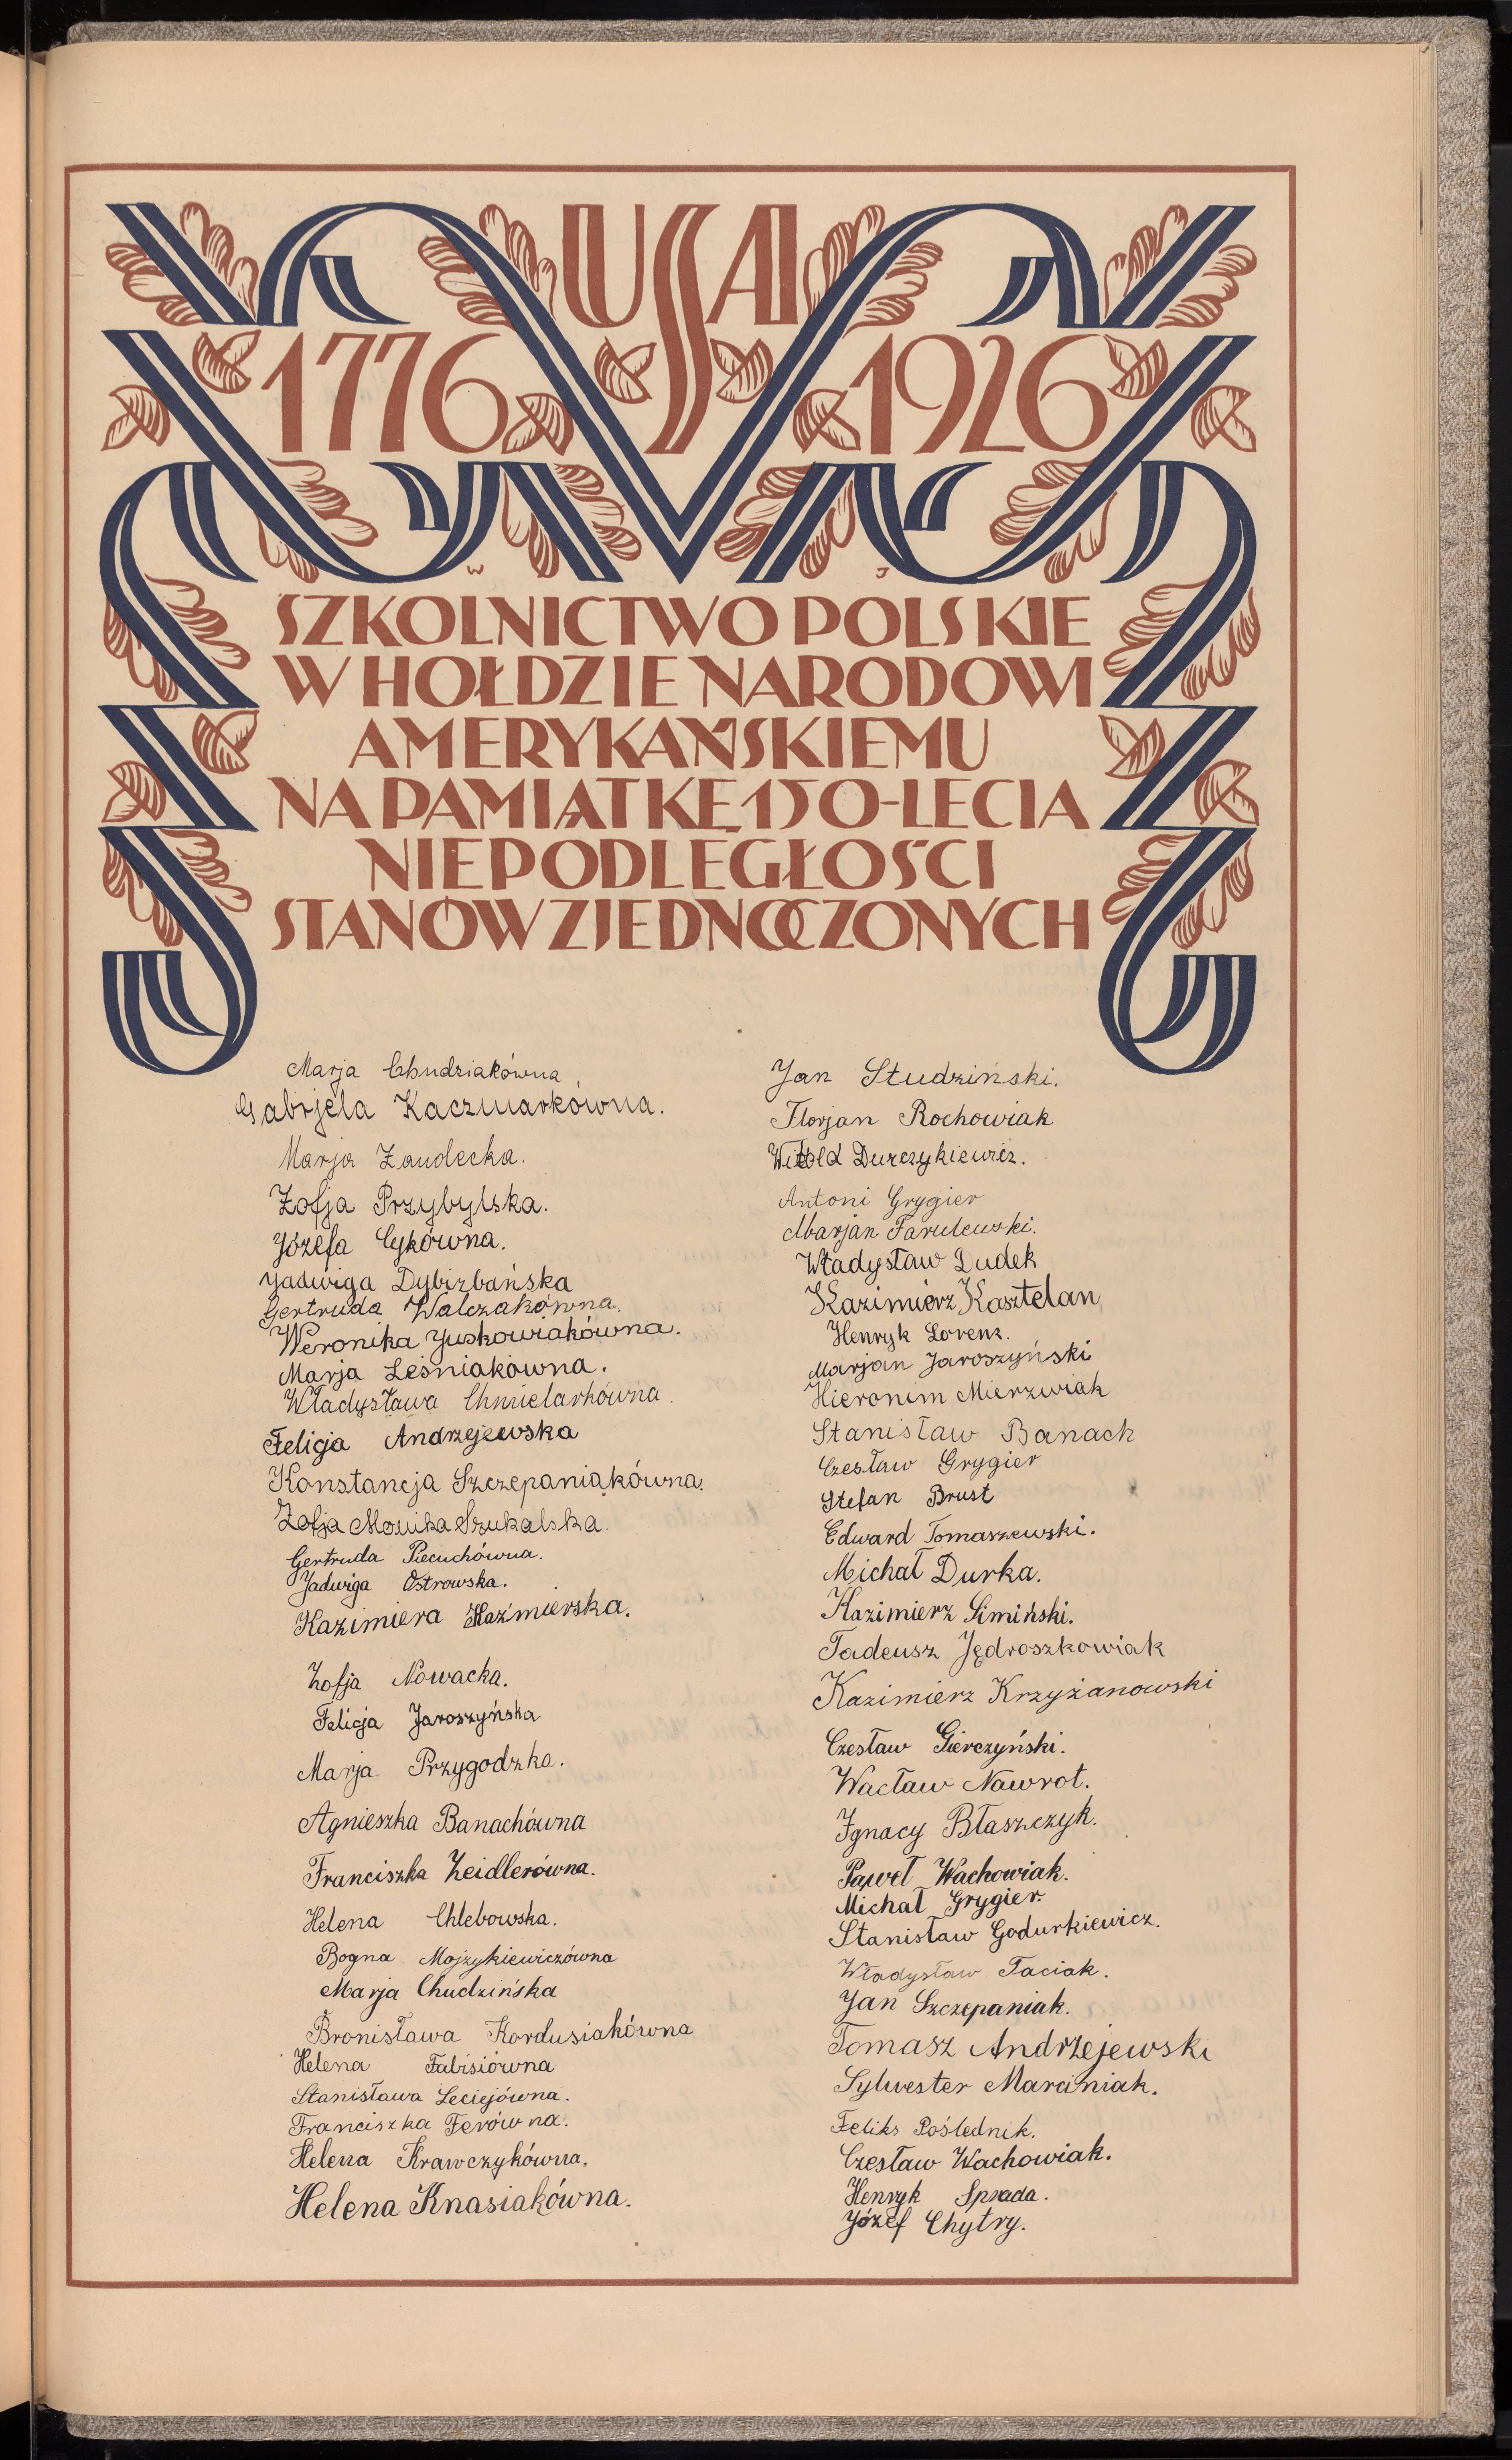 USA
1776 1926
W J
SZKOLNICTWO POLSKIE
W HOŁDZIE NARODOWI
AMERYKAŃSKIEMU
NA PAMIĄTKĘ 150-LECIA
NIEPODLEGŁOŚCI
STANÓW ZJEDNOCZONYCH
Marja Chudziakówna
Gabrjela Kaczmarkówna.
Marja Żaudecka.
Zofja Przybylska.
Józefa Cykówna.
Jadwiga Dybizbańska
Gertruda Walczakówna.
Weronika Juskowiakówna.
Marja Leśniakówna.
Władysława Chmielarkówna.
Felicja Andrzejewska
Konstancja Szczepaniakówna.
Zofja Monika Szukalska.
Gertruda Piecuchówna.
Jadwiga Ostrowska.
Kazimiera Kaźmierska.
Zofja Nowacka.
Felicja Jaroszyńska
Marja Przygodzka.
Agnieszka Banachówna
Franciszka Zeidlerówna.
Helena Chlebowska.
Bogna Mojzykiewiczówna
Marja Chudzińska
Bronisława Kordusiakówna
Helena Fabisiówna
Stanisława Leciejówna.
Franciszka Ferówna.
Helena Krawczykówna.
Helena Knasiakówna.
Jan Studziński.
Florjan Rochowiak
Witold Durczykiewicz.
Antoni Grygier
Marjan Farulewski.
Władysław Dudek
Kazimierz Kasztelan
Henryk Lorenz.
Marjan Jaroszyński
Hieronim Mierzwiak
Stanisław Banach
Czesław Grygier
Stefan Brust
Edward Tomaszewski.
Michał Durka.
Kazimierz Simiński.
Tadeusz Jędroszkowiak
Kazimierz Krzyżanowski
Czesław Gierczyński.
Wacław Nawrot.
Ignacy Błaszczyk.
Paweł Wachowiak.
Michał Grygier.
Stanisław Godurkiewicz.
Władysław Taciak.
Jan Szczepaniak.
Tomasz Andrzejewski
Sylwester Marciniak.
Feliks Poślednik.
Czesław Wachowiak.
Henryk Sprada.
Józef Chytry.